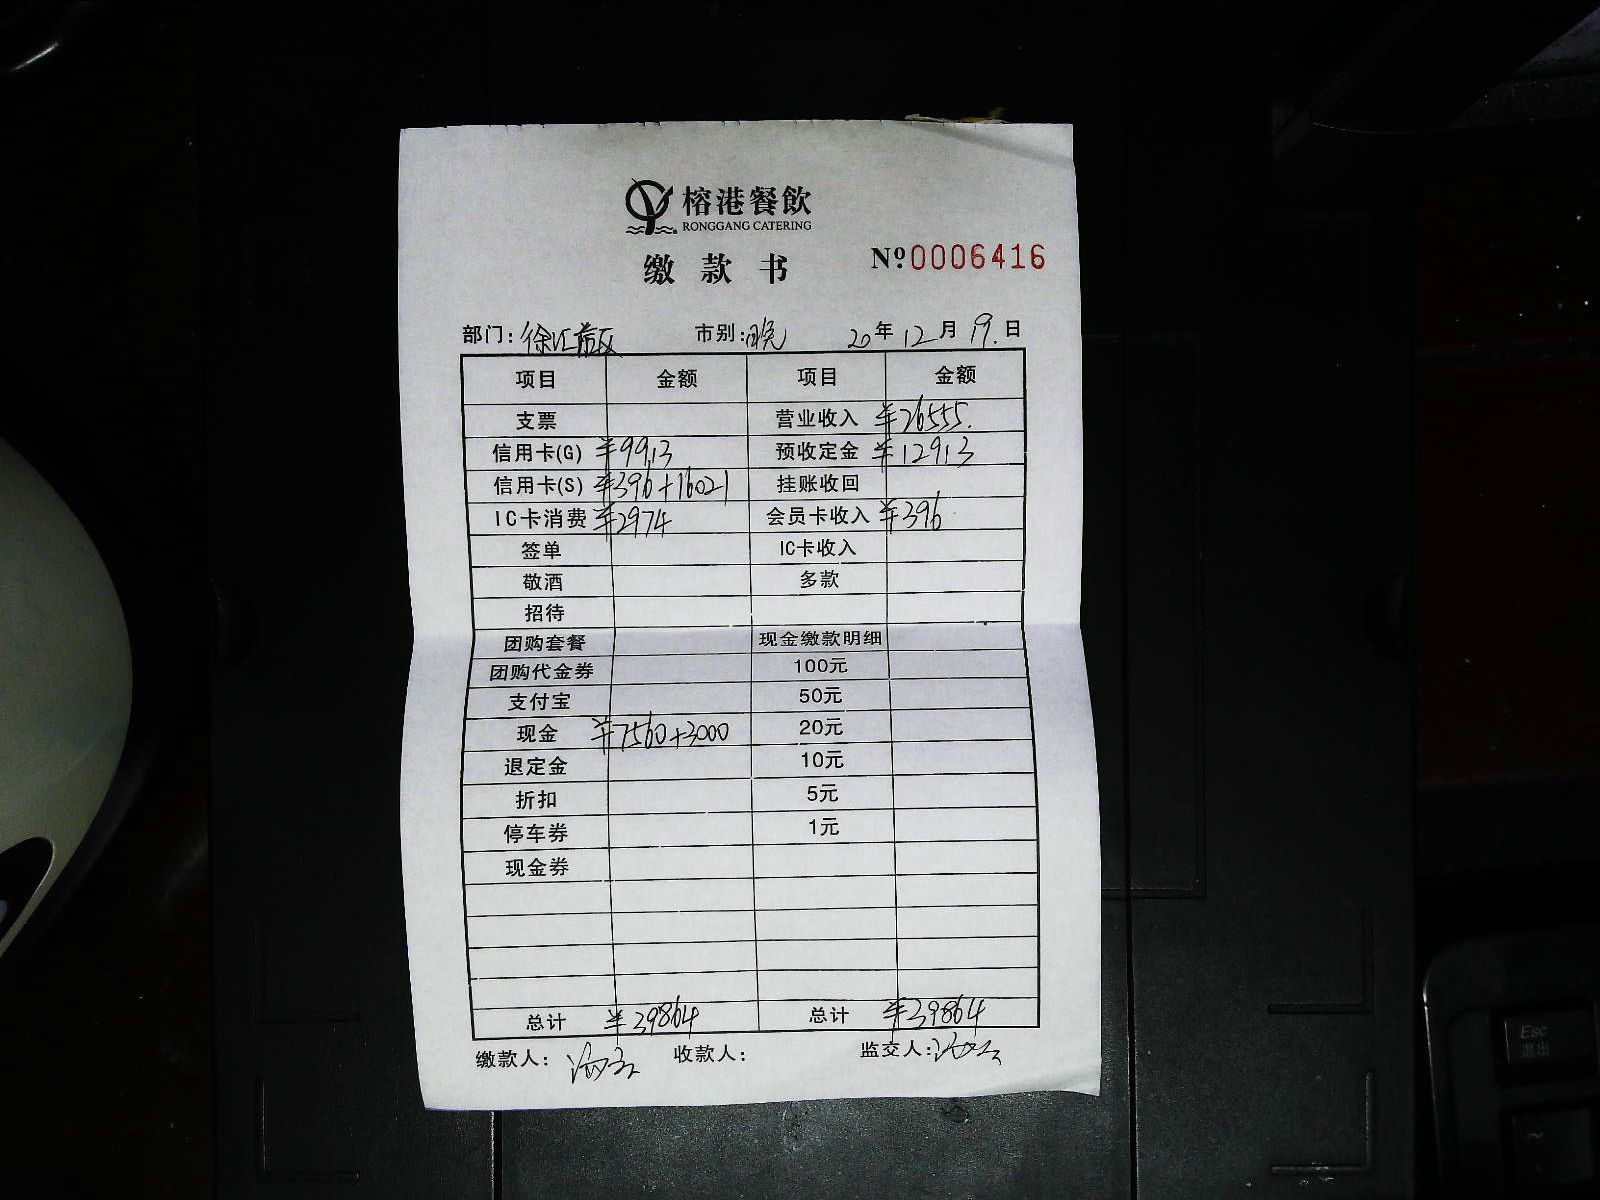 榕港餐飲
RONGGANG CATERING
缴款书
№0006416
部门：徐汇前区 市别： 20年12月19.日
项目 金额 项目 金额
支票 营业收入 ¥26555.
信用卡(G) ¥9913 预收定金 ¥12913
信用卡(S) ¥396+16021 挂账收回
IC卡消费 ¥2974 会员卡收入 ¥396
签单 IC卡收入
敬酒 多款
招待
团购套餐 现金缴款明细
团购代金券 100元
支付宝 50元
现金 ¥7560+3000 20元
退定金 10元
折扣 5元
停车券 1元
现金券
总计 ¥39864 总计 ¥39864
缴款人： 收款人： 监交人：
Esc
退出
~